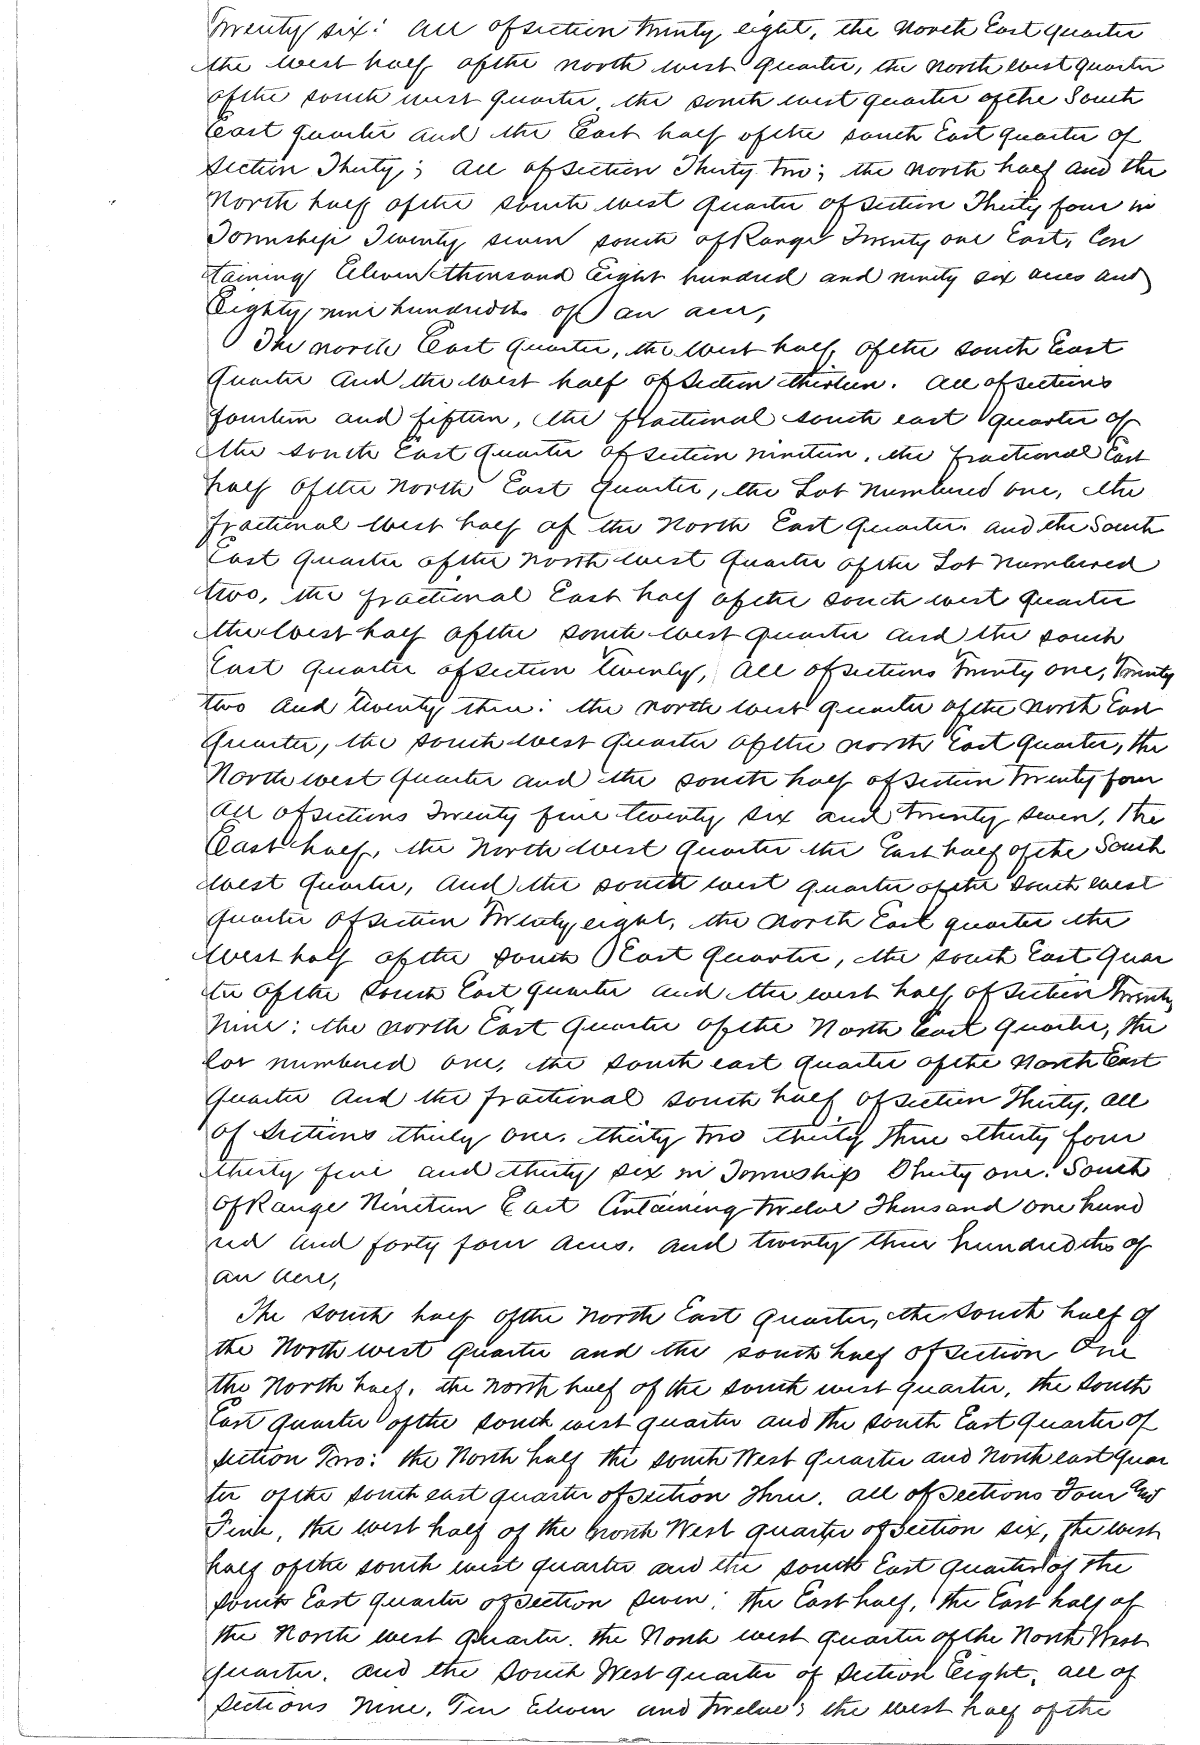 Twenty six: all of section Twenty eight, the North East quarter
the west half of the north west quarter, the north west quarter
of the south west quarter, the south west quarter of the South
East quarter and the East half of the south East quarter of
Section Thirty; all of section Thirty Two; the north half and the
North half of the south west quarter of section Thirty four in
Township Twenty seven south of Range Twenty one East, Con
taining Eleven thousand Eight hundred and ninety six acres and
Eighty nine hundredths of an acre,
The north East quarter, the west half of the south East
quarter and the west half of section thirteen. all of sections
fourteen and fifteen, the fractional south east quarter of
the south East quarter of section nineteen, the fractional East
half of the North East quarter, the Lot numbered one, the
fractional west half of the North East quarter. and the South
East quarter of the north west quarter of the Lot numbered
two, the fractional East half of the south west quarter
the west half of the south west quarter and the south
East quarter of section twenty, all of sections Twenty one, Twenty
two and twenty three: the north west quarter of the north East
quarter, the south west quarter of the north East quarter, the
North west quarter and the south half of section Twenty four
all of sections Twenty five twenty six and twenty seven, the
East half, the North west quarter the East half of the South
west quarter, and the south west quarter of the south west
quarter of section Twenty eight, the north East quarter the
west half of the south East quarter, the south East quar
ter of the south East quarter and the west half of section Twenty
Nine: the north East quarter of the North East quarter, the
lot numbered one, the south east quarter of the North East
quarter and the fractional south half of section Thirty, all
of sections thirty one, thirty two thirty three thirty four
thirty five and thirty six in Township Thirty one South
of Range Nineteen East Containing twelve Thousand one hund
red and forty four acres. and twenty three hundredths of
an acre,
The south half of the North East quarter, the South half of
the North west quarter and the south half of section One
the North half, the north half of the south west quarter, the south
East quarter of the south west quarter and the south East quarter of
section Two: the North half the south West quarter and North east quar
ter of the south east quarter of section Three. all of sections Four and
Five, the west half of the north West quarter of section six, the west
half of the south west quarter and the south East quarter of the
south East quarter of section seven: the East half, the East half of
the North west quarter. the North west quarter of the North West
quarter. and the South West quarter of section Eight, all of
sections Nine, Ten Eleven and twelve; the west half of the